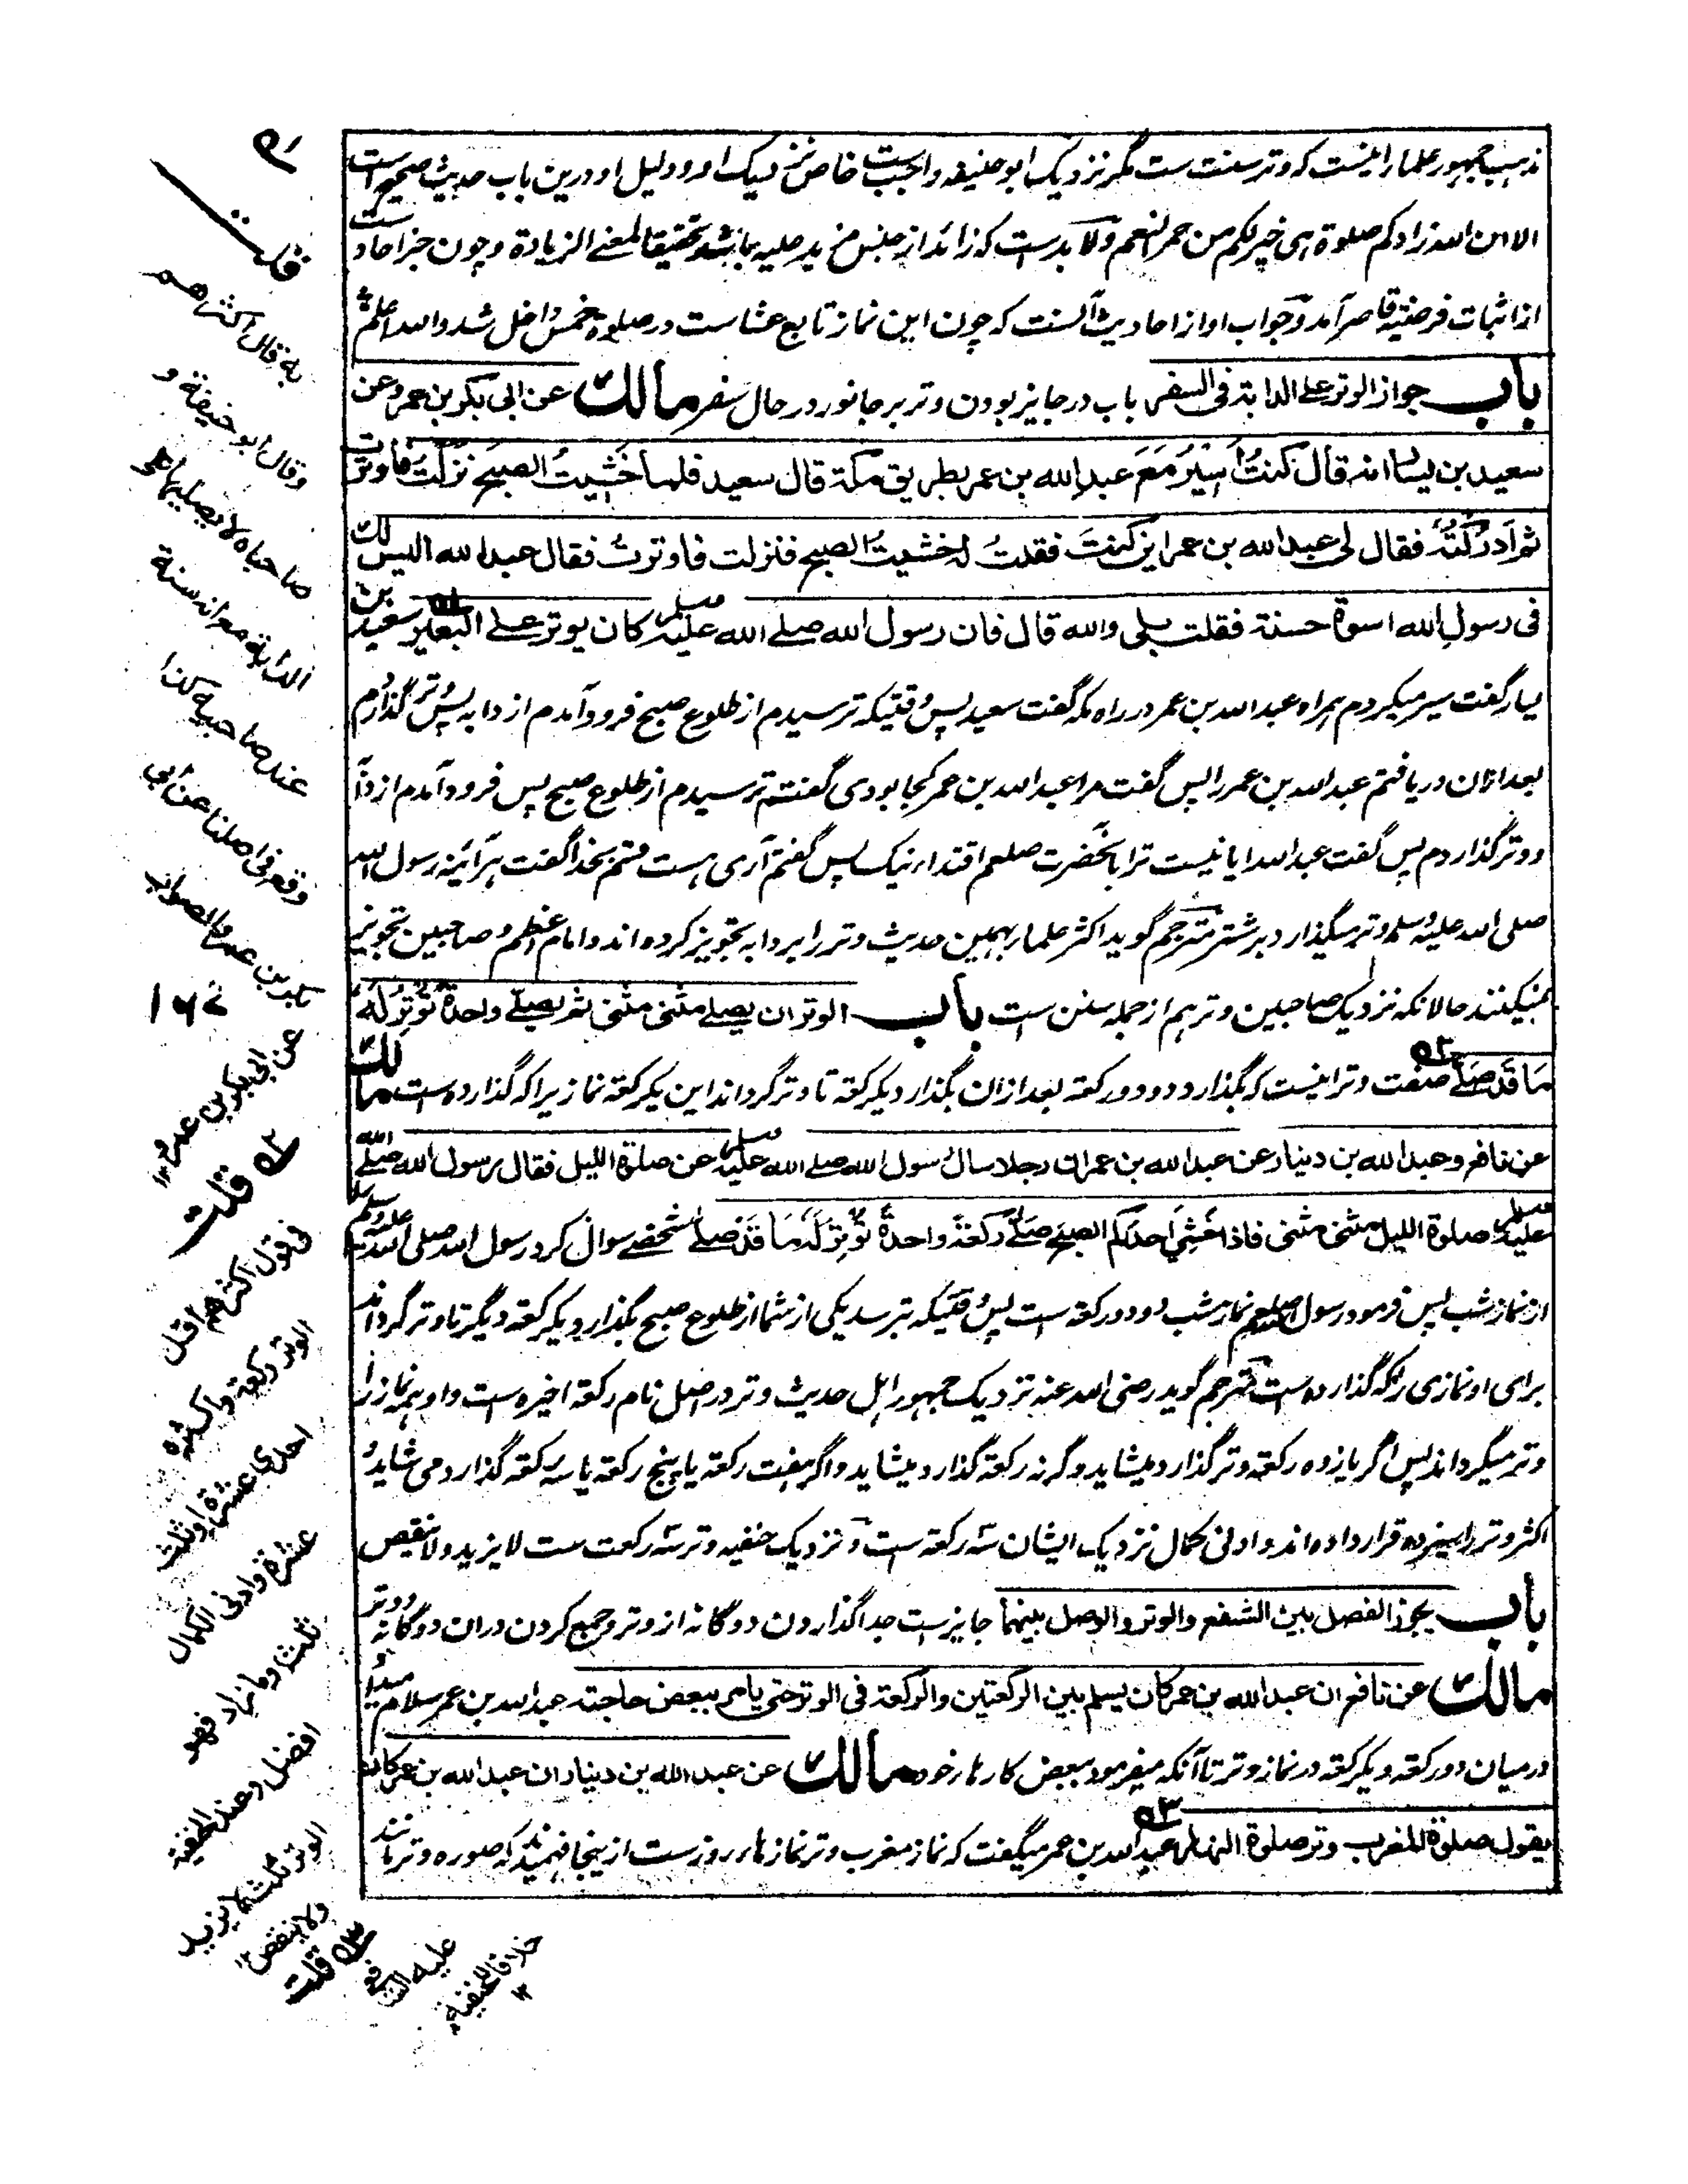 مذهب جمهور علما اینست که وتر سنت ست مگر نزدیک ابو حنیفه واجبست خاص نزدیک او و دلیل او درین باب حدیث صحیح است
الا ان الله زادکم صلوة هی خیر لکم من حمر النعم ولابدست که زائد از جنس مزید علیه باشد تحقیقا لمعنے الزیادة و چون خبر احاد ست
از اثبات فرضیة قاصر آمد و جواب او از احادیث آنست که چون این نماز تابع عشا ست در صلوة خمس داخل شد والله اعلم
باب جواز الوتر علے الدابة فی السفر باب در جایز بودن وتر بر جانور در حال سفر مالك عن ابی بکر بن عمر وعن
سعید بن یسار انه قال کنتُ اسیرُ مَعَ عبدِ الله بن عمر بطریق مکة قال سعید فلما خَشِیتُ الصبحَ نزلتُ فاوترت
ثم اَدرکتُه فقال لی عبد الله بن عمر این کنتَ فقلتُ له خشیتُ الصبح فنزلت فاوترتُ فقال عبد الله الیس لك
فی رسول الله اسوة حسنة فقلت بلی والله قال فان رسول الله صلے الله علیه وسلم کان یوتر علے البعیر سعید بن
یسار گفت سیر میکردم همراه عبد الله بن عمر در راه مکه گفت سعید پس وقتیکه ترسیدم از طلوع صبح فرود آمدم از دابه پس وتر گذاردم
بعد ازان دریافتم عبد الله بن عمر را پس گفت مرا عبد الله بن عمر کجا بودی گفتم ترسیدم از طلوع صبح پس فرود آمدم از دابه
و وتر گذاردم پس گفت عبد الله ایا نیست ترا بآنحضرت صلعم اقتداء نیک پس گفتم آری هست قسم بخدا گفت هر آئینه رسول الله
صلی الله علیه وسلم وتر میگذارد بر شتر مترجم گوید اکثر علما بهمین حدیث وتر را بر دابه تجویز کرده اند و امام اعظم و صاحبین تجویز
نمیکنند حالانکه نزدیک صاحبین وتر هم از جمله سنن ست باب الوتر ان یصلے مثنی مثنی ثم یصلے واحدة تُوتِر لَه
مَا قَد صَلے صفت وتر اینست که بگذارد دو دو رکعة بعد ازان بگذارد یکرکعة تا وتر گرداند این یکرکعة نماز یرا که گذارده است مالك
عن نافع وعبد الله بن دینار عن عبد الله بن عمر ان رجلا سال رسول الله صلے الله علیه وسلم عن صلوة اللیل فقال رسول الله صلے الله
علیه وسلم صلوة اللیل مثنی مثنی فاذا خَشِیَ اَحدکم الصبح صَلّے رَکعةً واحدةً تُوتِرُ لَه مَا قَد صلے شخصے سوال کرد رسول الله صلی الله علیه وسلم
از نماز شب پس فرمود رسول صلعم نماز شب دو دو رکعة است پس وقتیکه بترسد یکی از شما از طلوع صبح بگذارد یکرکعة دیگر تا وتر گرداند
برای او نمازی را که گذارده است مترجم گوید رضی الله عنه نزدیک جمهور اهل حدیث وتر در اصل نام رکعة اخیره است و او همه نماز را
وتر میگرداند پس اگر یازده رکعة وتر گذارد میشاید و گر نه رکعة گذارد میشاید و اگر هفت رکعة یا پنج رکعة یا سه رکعة گذارد می شاید و
اکثر وتر را سیزده قرار داده اند و ادنی کمال نزدیک ایشان سه رکعة است و نزدیک حنفیه وتر سه رکعت ست لا یزید ولا ینقص
باب یجوز الفصل بین الشفع والوتر والوصل بینهما جایزست جدا گذاردن دوگانه از وتر و جمع کردن دران دوگانه و وتر
مالك عن نافع ان عبد الله بن عمر کان یسلم بین الرکعتین والرکعة فی الوتر حتی یامر ببعض حاجته عبد الله بن عمر سلام میداد
درمیان دو رکعة و یکرکعة در نماز وتر تا آنکه میفرمود ببعض کارهاء خود مالك عن عبد الله بن دینار ان عبد الله بن عمر کان
یقول صلوة المغرب وتر صلوة النهار عبد الله بن عمر میگفت که نماز مغرب وتر نمازهاء روزست ازینجا فهمیده شد که صوره وتر مانند
قلت
به قال اکثرهم
وقال ابو حنیفة و
صاحباه لا یصلیها علی
الدابة مع انه سنة
عند صاحبیه کذا
وقع فی اصلنا عن ابی
بکر بن عمر والصواب
عن ابی بکر بن عمر ١٢
٥٢ قلت
فی قول اکثرهم اقل
الوتر رکعة واکثره
احدی عشرة او ثلث
عشرة وادنی الکمال
ثلث وما زاد فهو
افضل وعند الحنفیة
الوتر ثلث لا یزید
ولا ینقص ١٢
٥٣ قلت
علیه الشافعی
خلافا للحنفیة ١٢